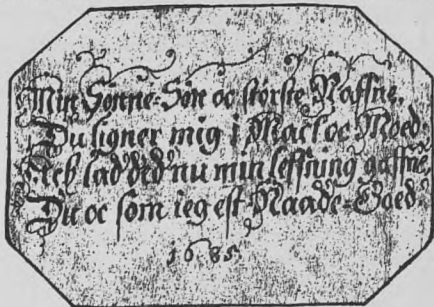 Min Sønne-Søn oc største Naffne,
Du ligner mig i Mact oc Mood
Ach lad did nu min leffning gaffne,
Du oc som ieg est Naade-Goed
1685